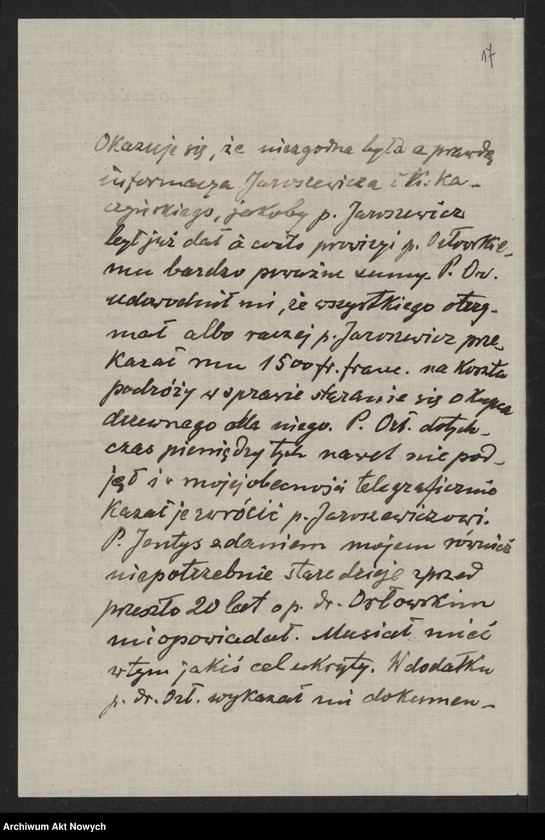 17
Okazuje się, że niezgodna była z prawdą
informacya Jaroszewicza i Ks. Ka-
czyńskiego, jakoby p. Jaroszewicz
był już dał à conto prowizyi p. Orłowskie-
mu bardzo poważne sumy. P. Or.
udowodnił mi, że wszystkiego otrzy-
mał albo raczej p. Jaroszewicz prze-
kazał mu 1500 fr. franc. na koszta
podróży w sprawie starania się o kupca
drzewnego dla niego. P. Orł. dotych-
czas pieniędzy tych nawet nie pod-
jął i w mojej obecności telegraficznie
kazał je zwrócić p. Jaroszewiczowi.
P. Jentys zdaniem mojem również
niepotrzebnie stare dzieje z przed
przeszło 20 lat o p. dr. Orłowskim
mi opowiadał. Musiał mieć
w tym jakiś cel ukryty. W dodatku
p. dr. Orł. wykazał mi dokumen-
Archiwum Akt Nowych